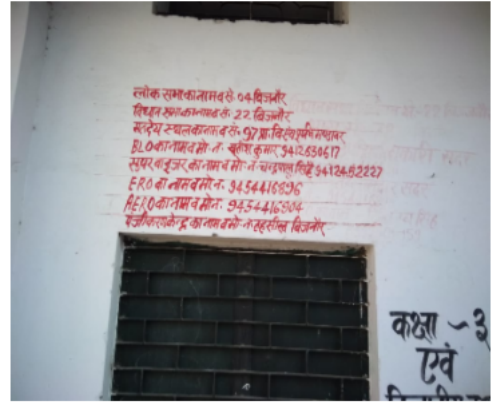 लोक सभा का नाम व सं. 04 बिजनौर
विधान सभा का नाम व सं. 22 बिजनौर
मतदेय स्थल का नाम व सं. 97 प्रा. वि.
BLO का नाम व मो. न. कुमार 9412630617
सुपरवाइजर का नाम व मो. न. चन्द्रपाल सिंह 9412492227
ERO का नाम व मो न. 9454416896
AERO का नाम व मो न. 9454416904
पंजीकरण केन्द्र का नाम व मो. न. तहसील बिजनौर
कक्षा ~ ३
एवं